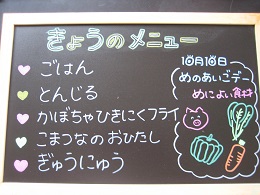 きょうのメニュー
ごはん
とんじる
かぼちゃひきにくフライ
こまつなのおひたし
ぎゅうにゅう
10月10日
めのあいごデー
めによい食材